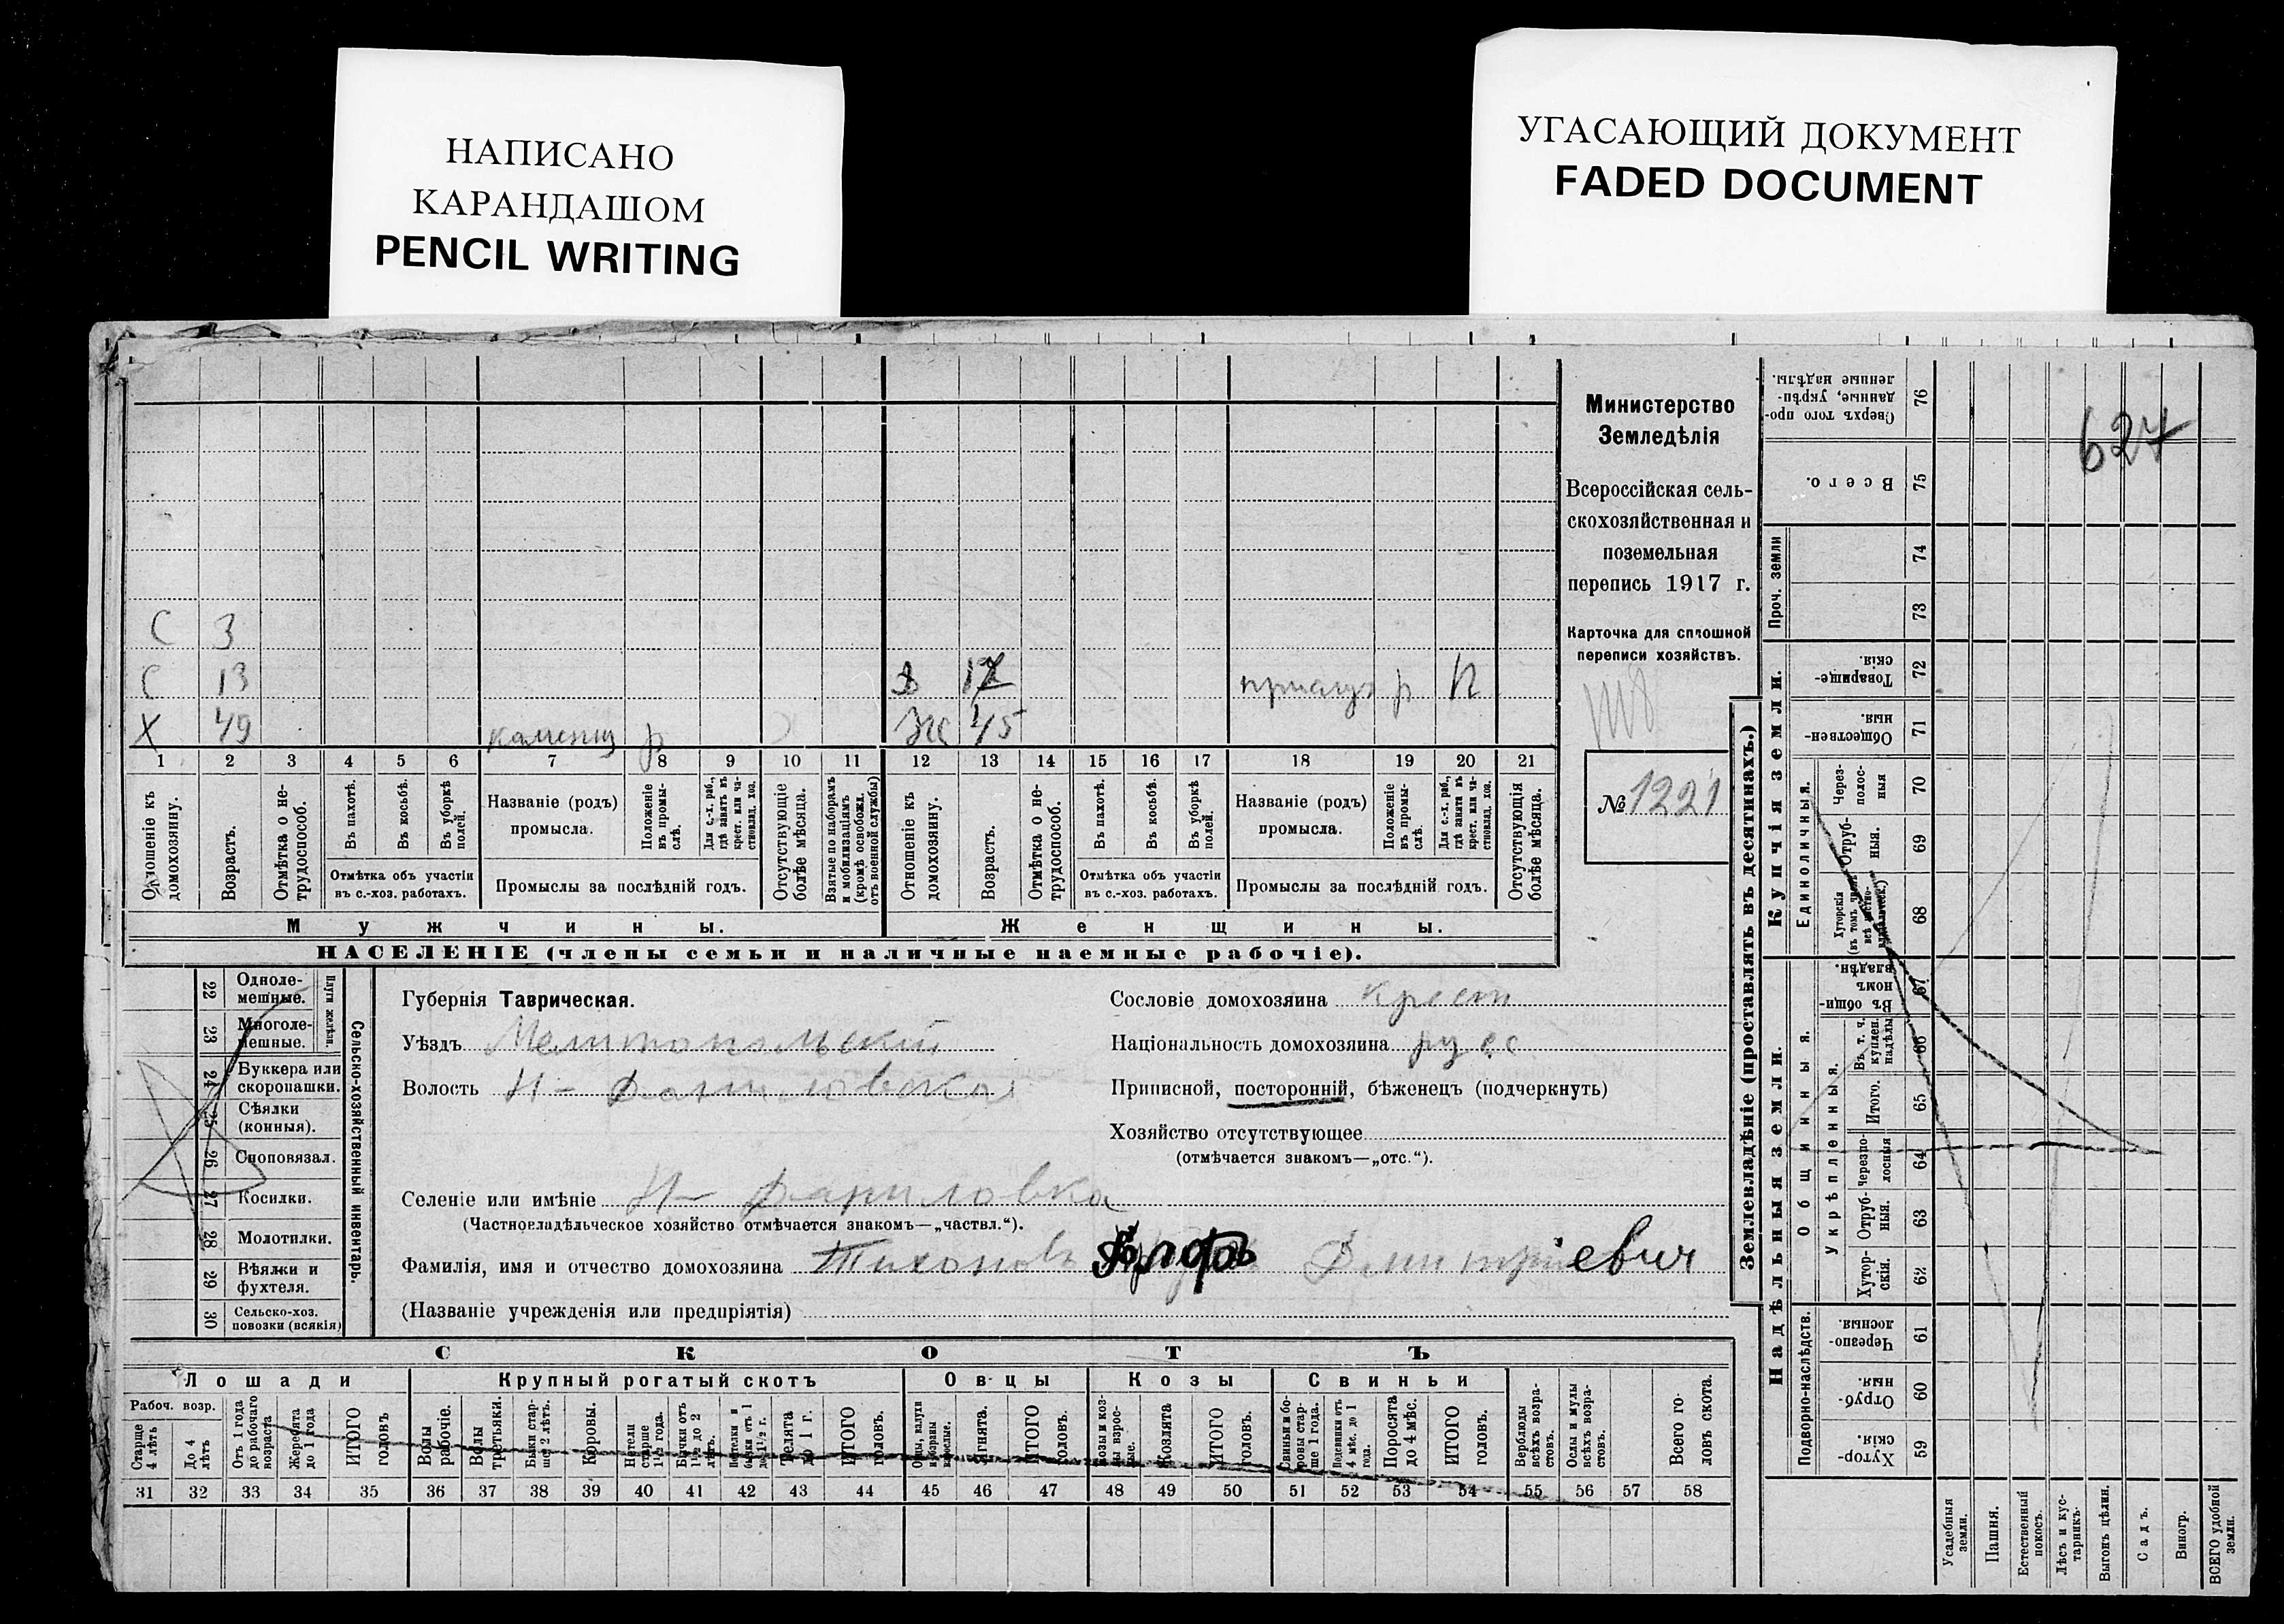 НАПИСАНО
КАРАНДАШОМ
PENCIL WRITING
УГАСАЮЩИЙ ДОКУМЕНТ
FADED DOCUMENT
С 3
С 13 17 р П
Х 49 каменщ р Ж 45
1 2 3 4 5 6 7 8 9 10 11 12 13 14 15 16 17 18 19 20 21
Отношеніе къ домохозяину.
Возрастъ.
Отмѣтка о нетрудоспособ.
Въ пахотѣ.
Въ косьбѣ.
Въ уборкѣ полей.
Отмѣтка объ участіи
въ с.-хоз. работахъ.
Названіе (родъ)
промысла.
Положеніе въ промыслѣ.
Для с.-х. раб., гдѣ занятъ въ крест. или частновлад. хоз.
Промыслы за послѣдній годъ.
Отсутствующіе болѣе мѣсяца.
Взятые по наборамъ и мобилизаціямъ (кромѣ освобожд. отъ военной службы)
Отношеніе къ домохозяину.
Возрастъ.
Отмѣтка о нетрудоспособ.
Въ пахотѣ.
Въ косьбѣ.
Въ уборкѣ полей.
Отмѣтка объ участіи
въ с.-хоз. работахъ.
Названіе (родъ)
промысла.
Положеніе въ промыслѣ.
Для с.-х. раб., гдѣ занята въ крест. или частновлад. хоз.
Промыслы за послѣдній годъ.
Отсутствующія болѣе мѣсяца.
Мужчины. Женщины.
НАСЕЛЕНІЕ (члены семьи и наличные наемные рабочіе).
Министерство
Земледѣлія
Всероссійская сель-
скохозяйственная и
поземельная
перепись 1917 г.
Карточка для сплошной
переписи хозяйствъ.
№ 1221
22 Одноле-
мешные.
23 Многоле-
мешные.
Плуги желѣзн.
24 Буккера или
скоропашки.
25 Сѣялки
(конныя).
26 Сноповязал.
27 Косилки.
28 Молотилки.
29 Вѣялки и
фухтеля.
30 Сельско-хоз.
повозки (всякія)
Сельско-хозяйственный инвентарь.
Губернія Таврическая.
Уѣздъ Мелитопольскій
Волость Н-Даниловская
Селеніе или имѣніе Н-Даниловка
(Частновладѣльческое хозяйство отмѣчается знакомъ—„частвл.“).
Фамилія, имя и отчество домохозяина Тихоновъ Дмитріевич
(Названіе учрежденія или предпріятія)
Сословіе домохозяина крест
Національность домохозяина русс
Приписной, посторонній, бѣженецъ (подчеркнуть)
Хозяйство отсутствующее
(отмѣчается знакомъ—„отс.“).
СКОТЪ
Лошади Крупный рогатый скотъ Овцы Козы Свиньи
Рабоч. возр.
Старше 4 лѣтъ
До 4 лѣтъ
Отъ 1 года до рабочаго возраста
Жеребята до 1 года
ИТОГО головъ
Волы рабочіе.
Волы третьяки.
Быки старше 2 лѣтъ.
Коровы.
Нетели старше 1½ года.
Бычки отъ 1½ до 2 лѣтъ.
Телята до 1 г.
ИТОГО головъ.
Ягнята.
ИТОГО головъ.
Козы и козлы взрослые.
Козлята
ИТОГО головъ.
Свиньи и боровы старше 1 года.
Подсвинки отъ 4 мѣс. до 1 года.
Поросята до 4 мѣс.
ИТОГО головъ.
Верблюды всѣхъ возрастовъ.
Ослы и мулы всѣхъ возрастовъ.
Всего головъ скота.
31 32 33 34 35 36 37 38 39 40 41 42 43 44 45 46 47 48 49 50 51 52 53 54 55 56 57 58
627
Землевладѣніе (проставлять въ десятинахъ.)
Надѣльныя земли. Купчія земли.
Проч. земли
Подворно-наслѣдств.
Общинныя.
Укрѣпленныя.
Единоличныя.
Сверхъ того проданные, укрѣпленные надѣлы. 76
Всего. 75
74
73
Товарищескія. 72
Общественныя. 71
Черезполосныя 70
Отрубныя. 69
Хуторскія 68
Въ общинномъ владѣн. 67
Въ т. ч. куплен. надѣлы 66
Итого. 65
Черезполосныя 64
Отрубныя. 63
Хуторскія. 62
Черезполосныя 61
Отрубныя. 60
Хуторскія. 59
Усадебныя земли.
Пашня.
Естественный покосъ.
Лѣсъ и кустарникъ.
Выгонъ цѣлин.
Садъ.
Виногр.
ВСЕГО удобной земли.